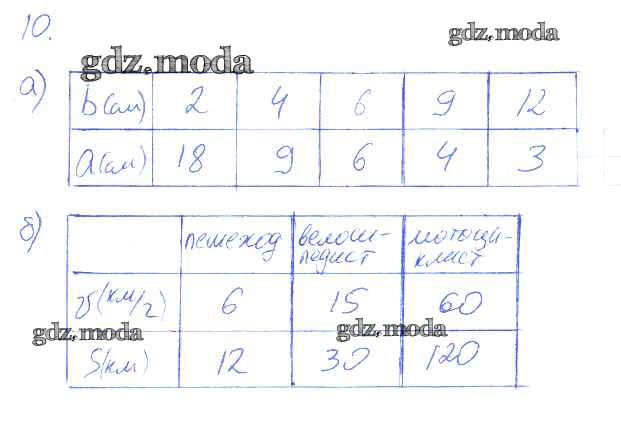 10.
gdz.moda
gdz.moda
а)
b(см) 2 4 6 9 12
a(см) 18 9 6 4 3
б)
пешеход велоси- мотоци-
педист клист
v(км/г) 6 15 60
gdz.moda
gdz.moda
S(км) 12 30 120